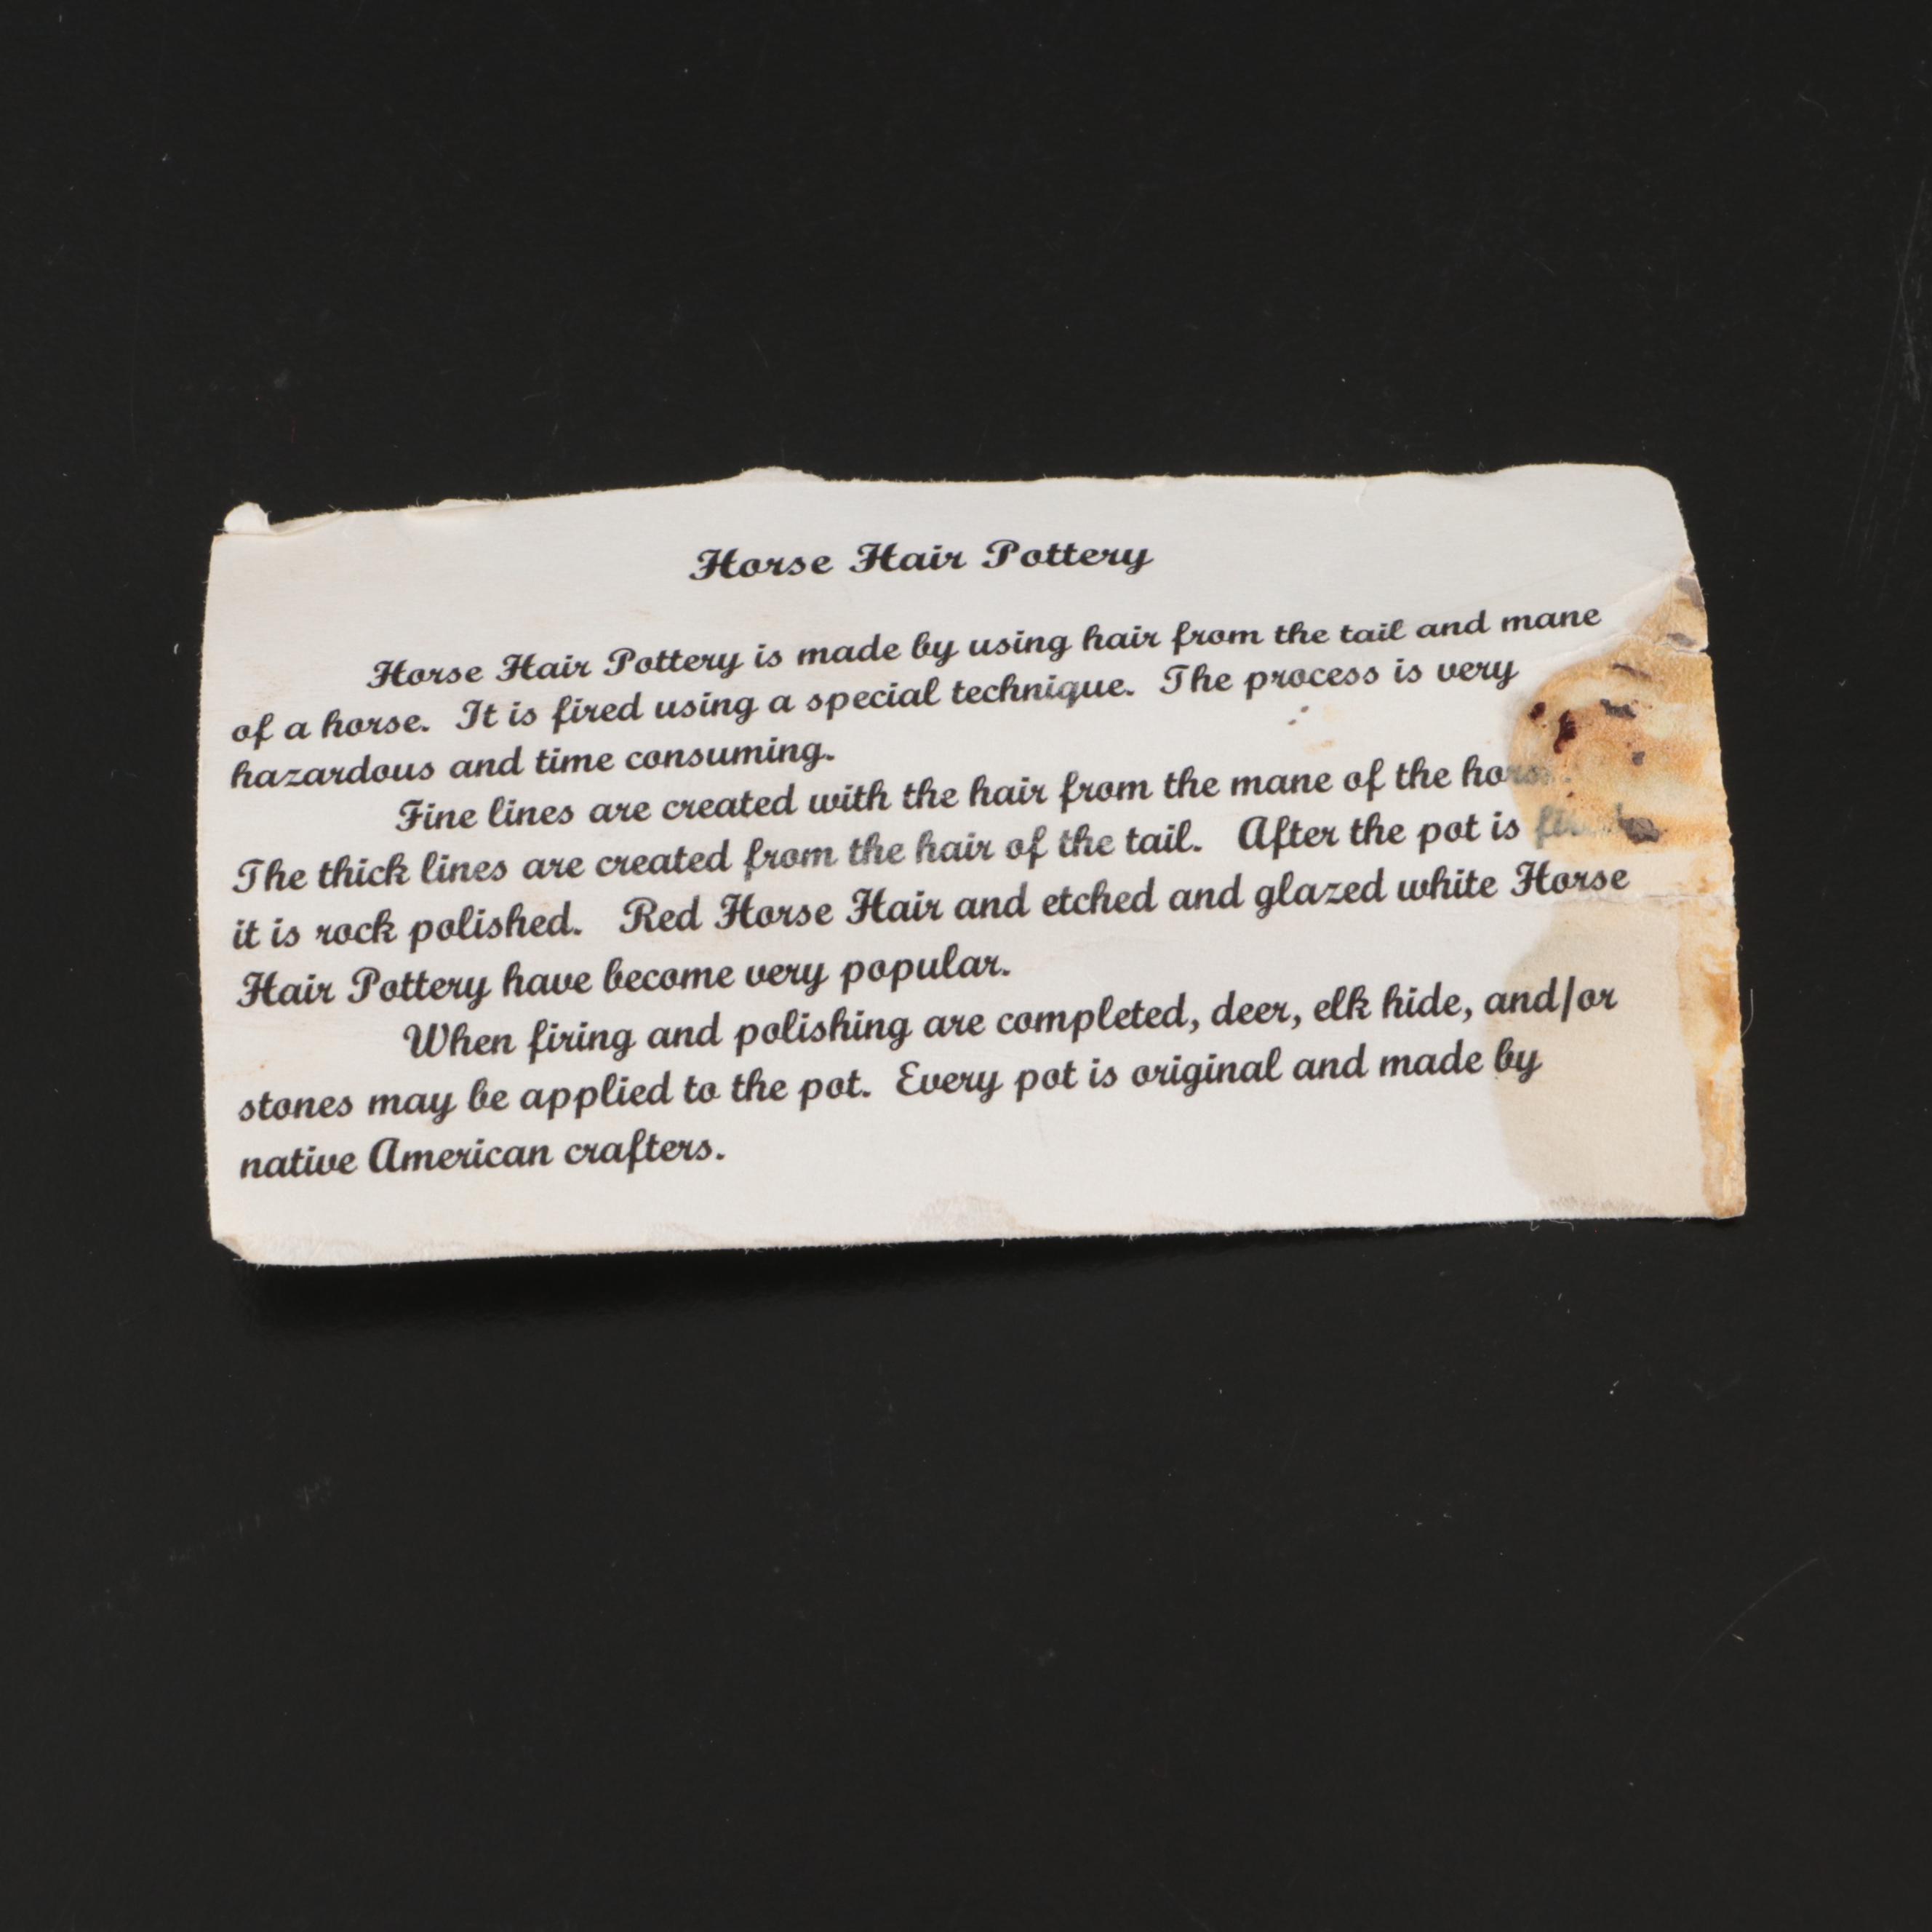 Horse Hair Pottery
Horse Hair Pottery is made by using hair from the tail and mane
of a horse. It is fired using a special technique. The process is very
hazardous and time consuming.
Fine lines are created with the hair from the mane of the
The thick lines are created from the hair of the tail. After the pot is
it is rock polished. Red Horse Hair and etched and glazed white Horse
Hair Pottery have become very popular.
When firing and polishing are completed, deer, elk hide, and/or
stones may be applied to the pot. Every pot is original and made by
native American crafters.